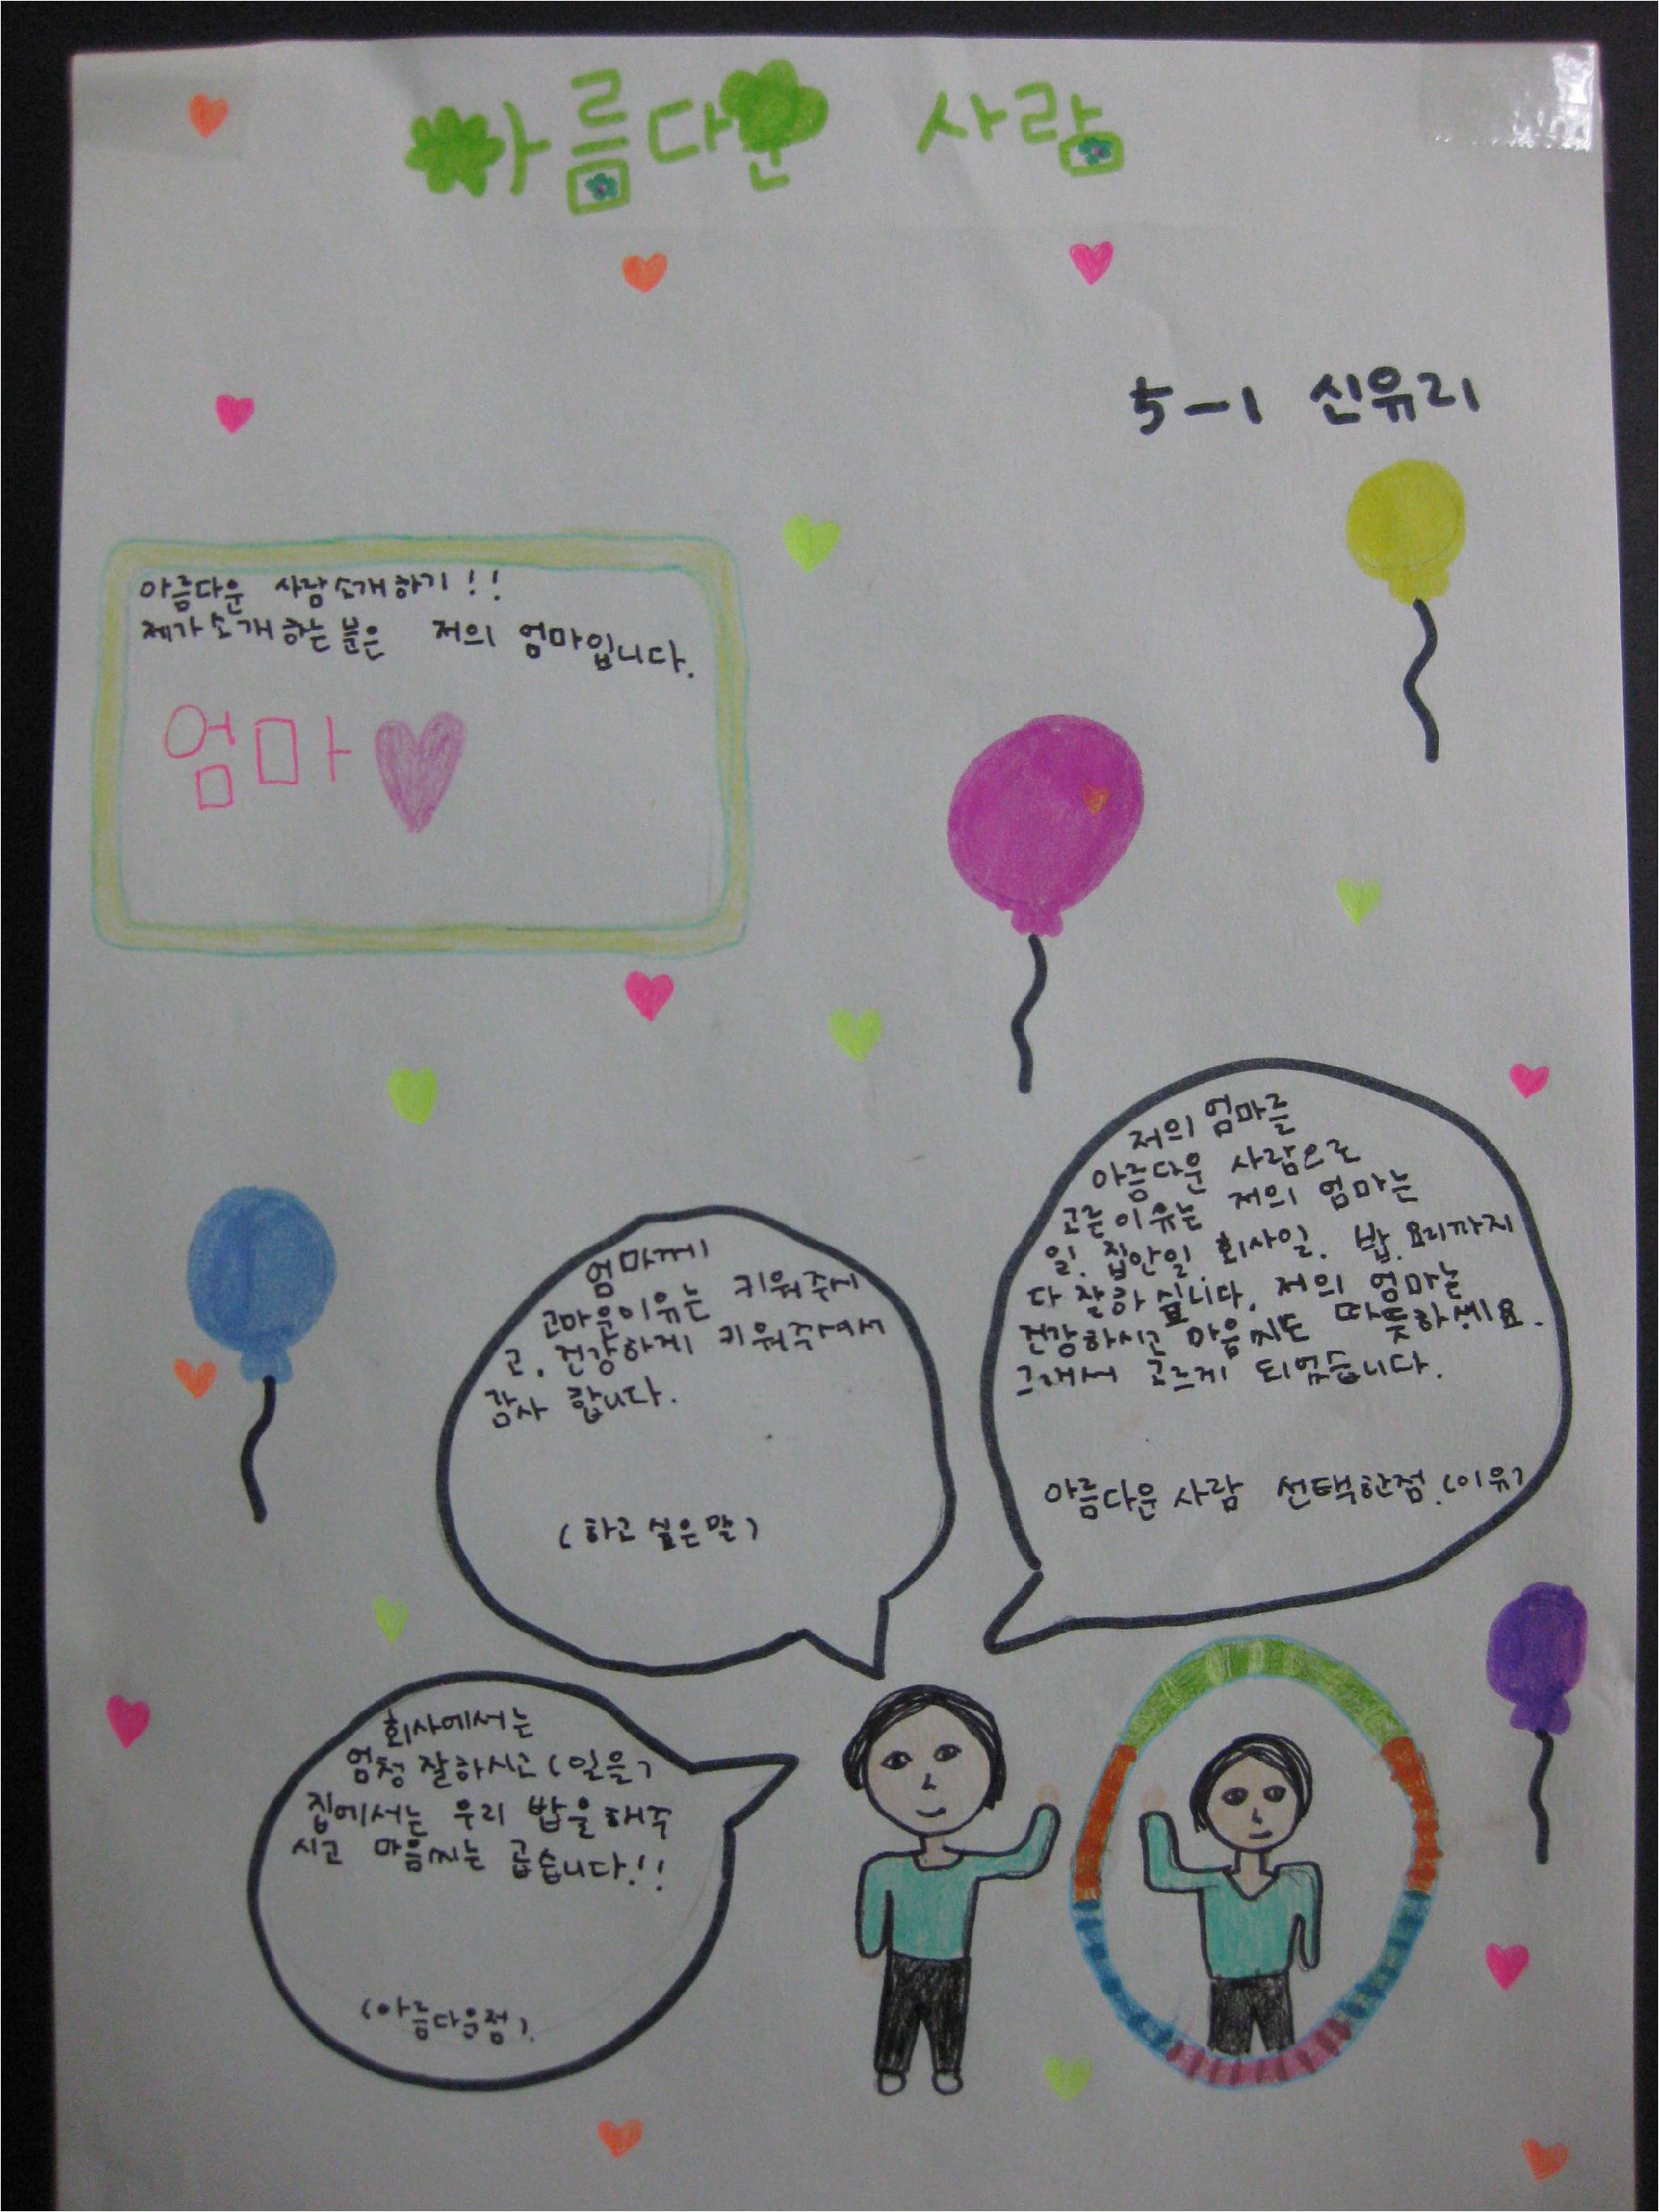 아름다운 사람
5-1 신유리
아름다운 사람소개하기!!
제가소개하는분은 저의 엄마입니다.
엄마
저의 엄마를
아름다운 사람으로
고른이유는 저의 엄마는
일. 집안일. 회사일. 밥.요리까지
다 잘하십니다. 저의 엄마는
건강하시고 마음씨도 따뜻하세요.
그래서 고르게 되었습니다.
아름다운 사람 선택한점.(이유)
엄마께
고마운이유는 키워주시
고. 건강하게 키워주셔서
감사 합니다.
(하고 싶은말)
회사에서는
엄청 잘하시고 (일을)
집에서는 우리 밥을해주
시고 마음씨는 곱습니다!!
(아름다운점).